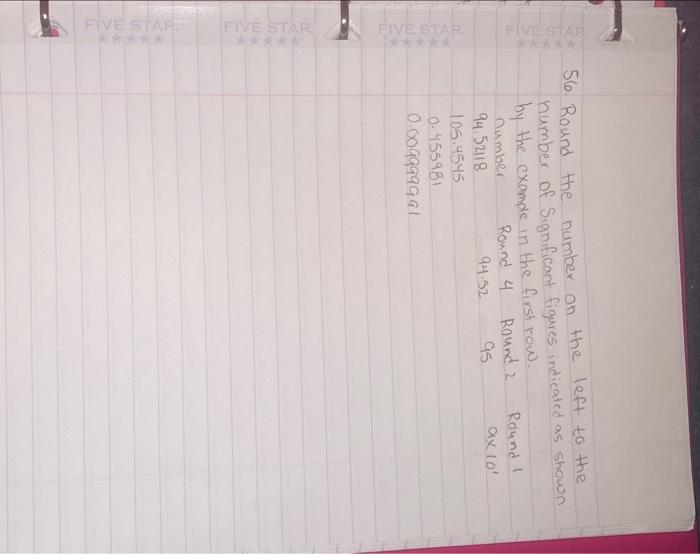 FIVE STAR. FIVE STAR. FIVE STAR. FIVE STAR.
56. Round the number on the left to the
number of Significant figures indicated as shown
by the example in the first row.
number Round 4 Round 2 Round 1
94.5218 94.52 95 9x10¹
105.4545
0.455981
0.009999991